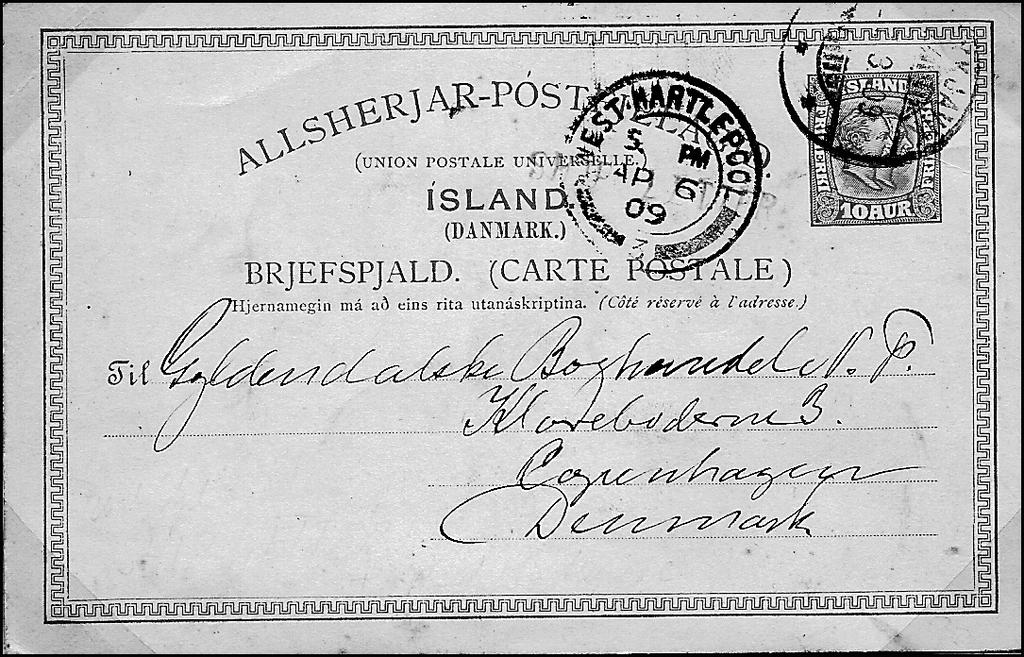 ALLSHERJAR-PÓST
(UNION POSTALE UNIVERSELLE.)
ÍSLAND.
(DANMARK.)
BRJEFSPJALD. (CARTE POSTALE)
Hjernamegin má að eins rita utanáskriptina. (Côté réservé à l'adresse.)
WEST HARTLEPOOL
5 PM
AP 6
09
ISLAND
FRIMERKI
FRIMERKI
10 AUR
Til Gyldendalske Boghandel N. P.
Klareboderne 3.
Copenhagen
Denmark